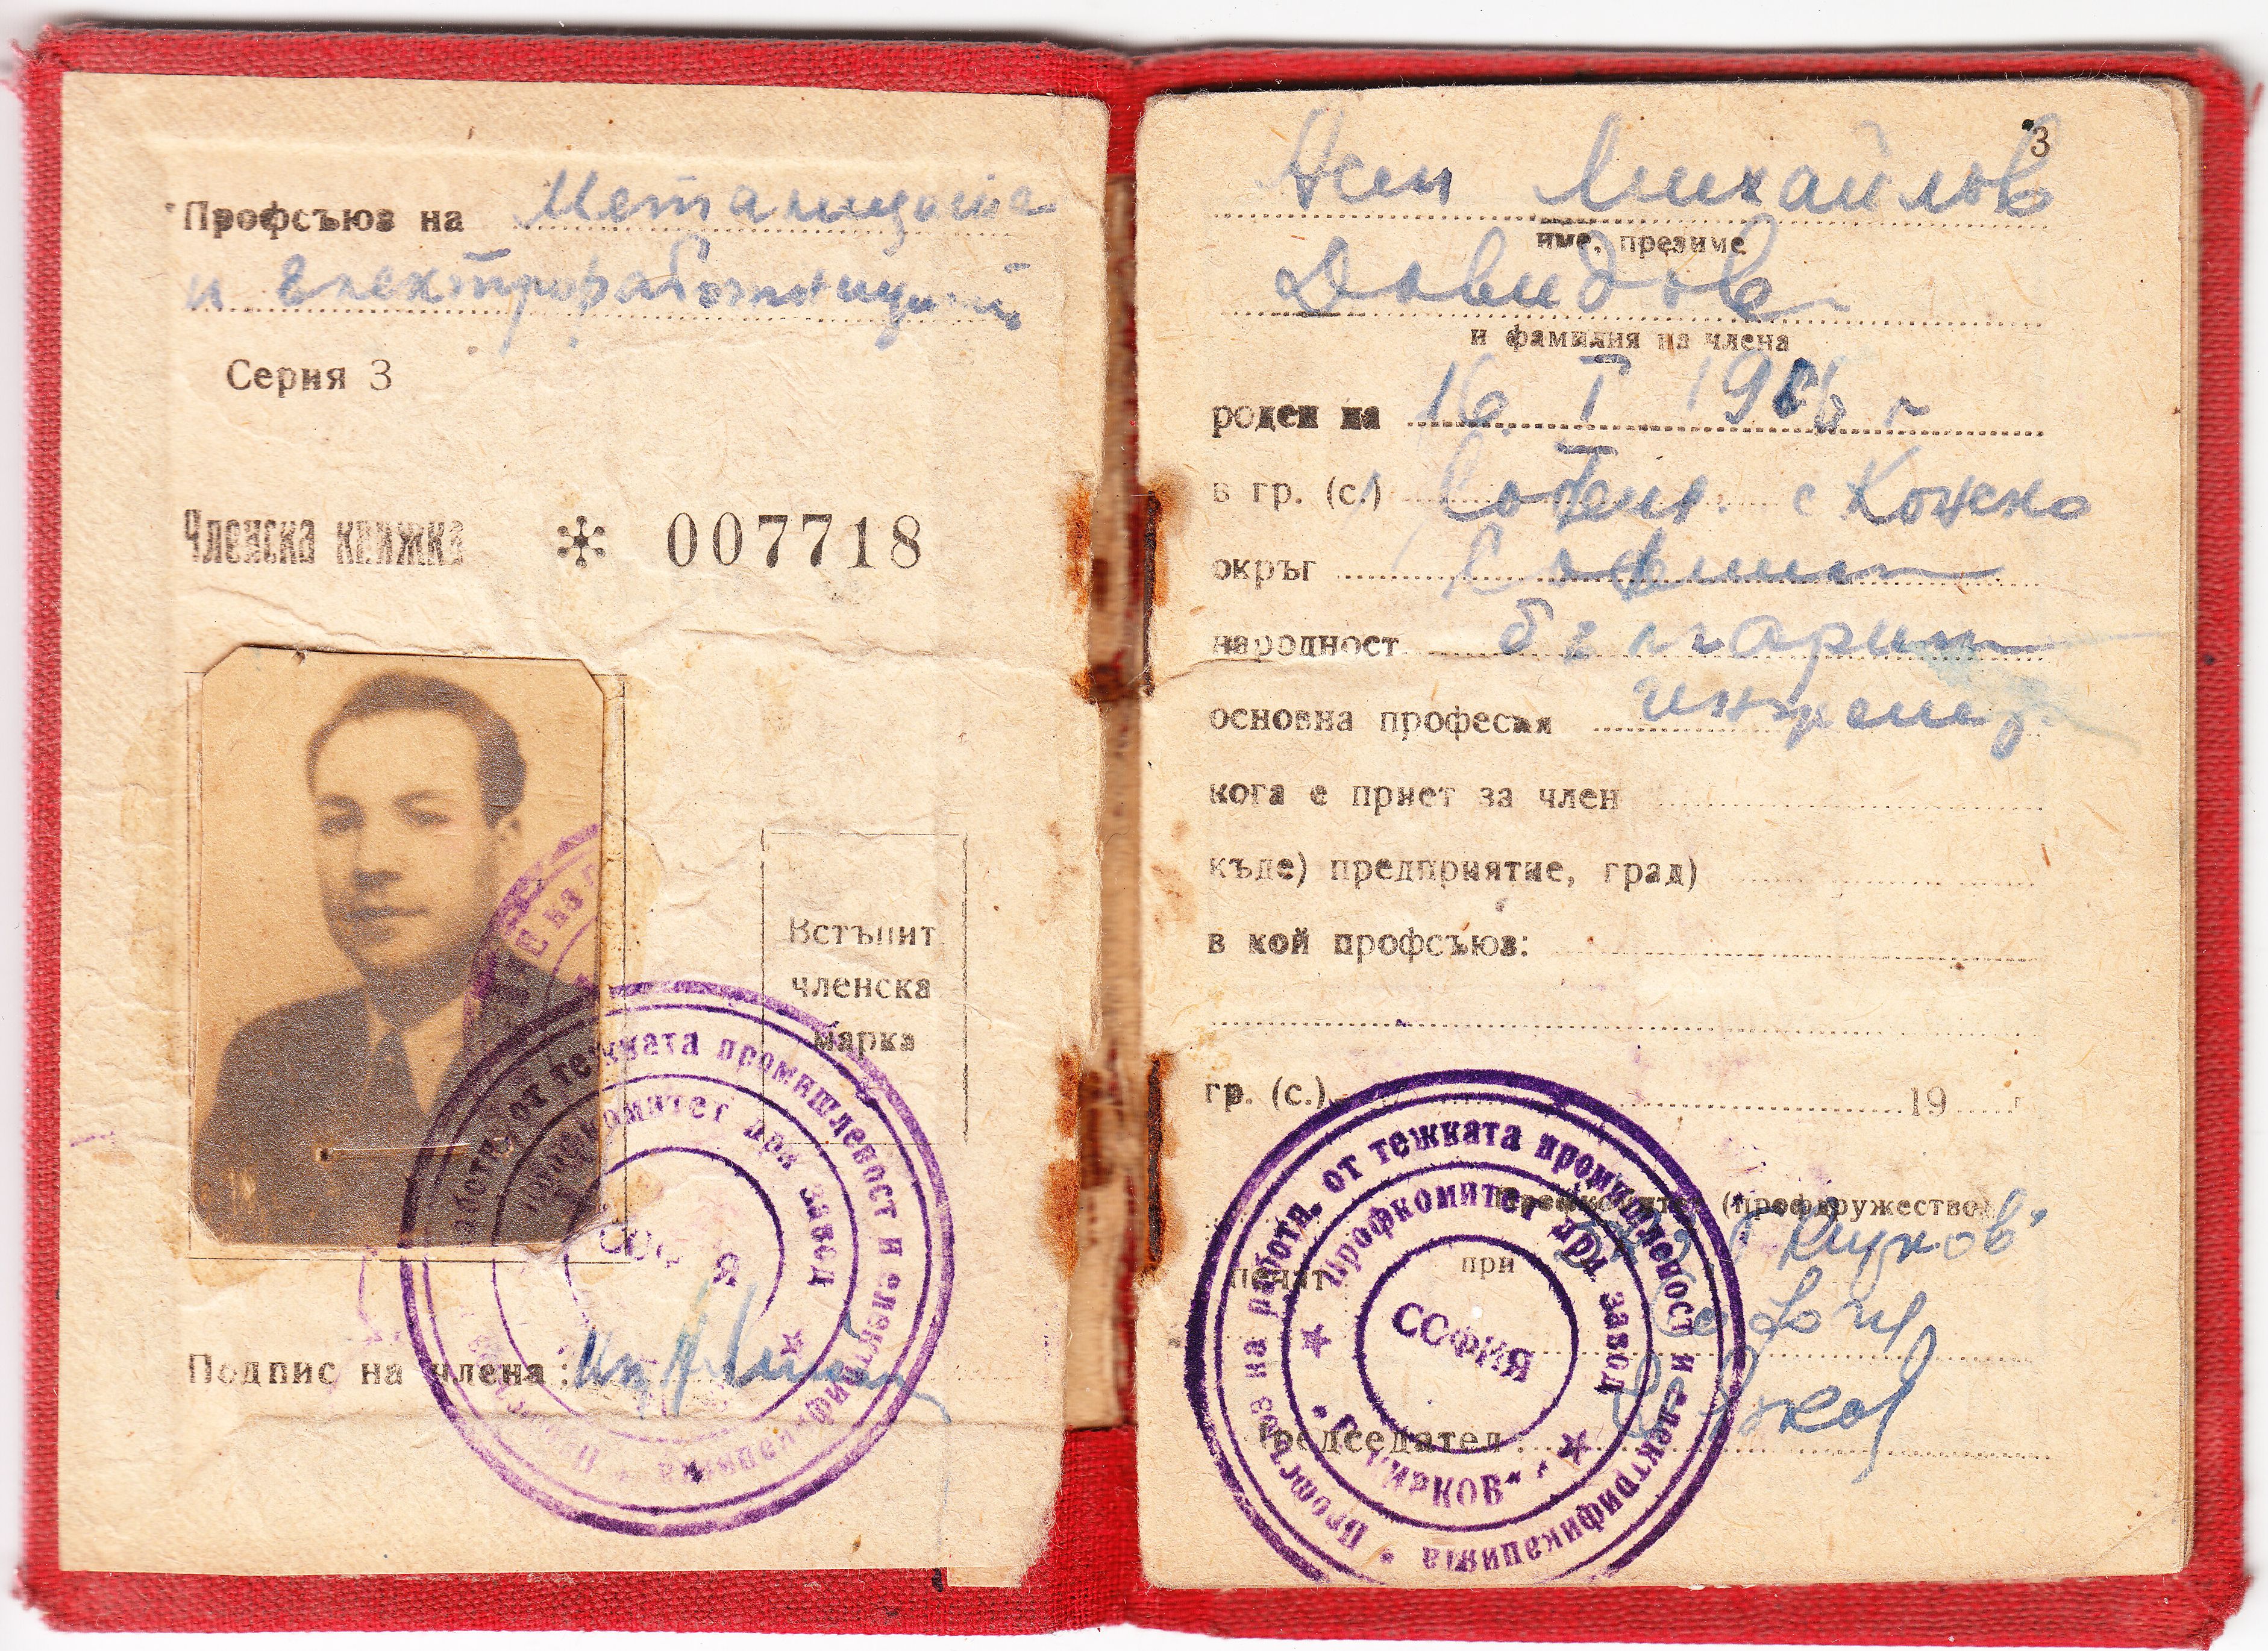 Профсъюз на Металиците
и Електроработниците
Серия 3
Членска книжка * 007718
Встъпит.
членска
марка
Подпис на члена:
Профсъюз на работн. от тежката промишленост и електрификацията
Профкомитет при завод
СОФИЯ
3
Асен Михайлов
име, презиме
Давидов
и фамилия на члена
роден на 16. I 19 г
в гр. (с.)
округ София
народност българин
основна професия инженер
кога е приет за член
къде) предприятие, град)
в кой профсъюз:
гр. (с.) 19 г
Профкомитет (профдружество)
печат при
Председател:
Профсъюз на работн. от тежката промишленост и електрификацията
Профкомитет при завод
СОФИЯ